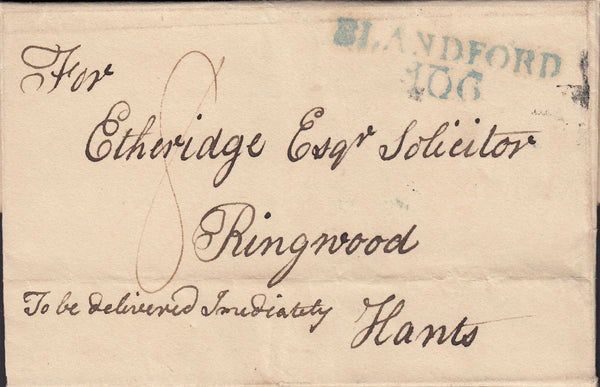 BLANDFORD
106
For
8
Etheridge Esqr Solicitor
Ringwood
To be delivered Imediately
Hants